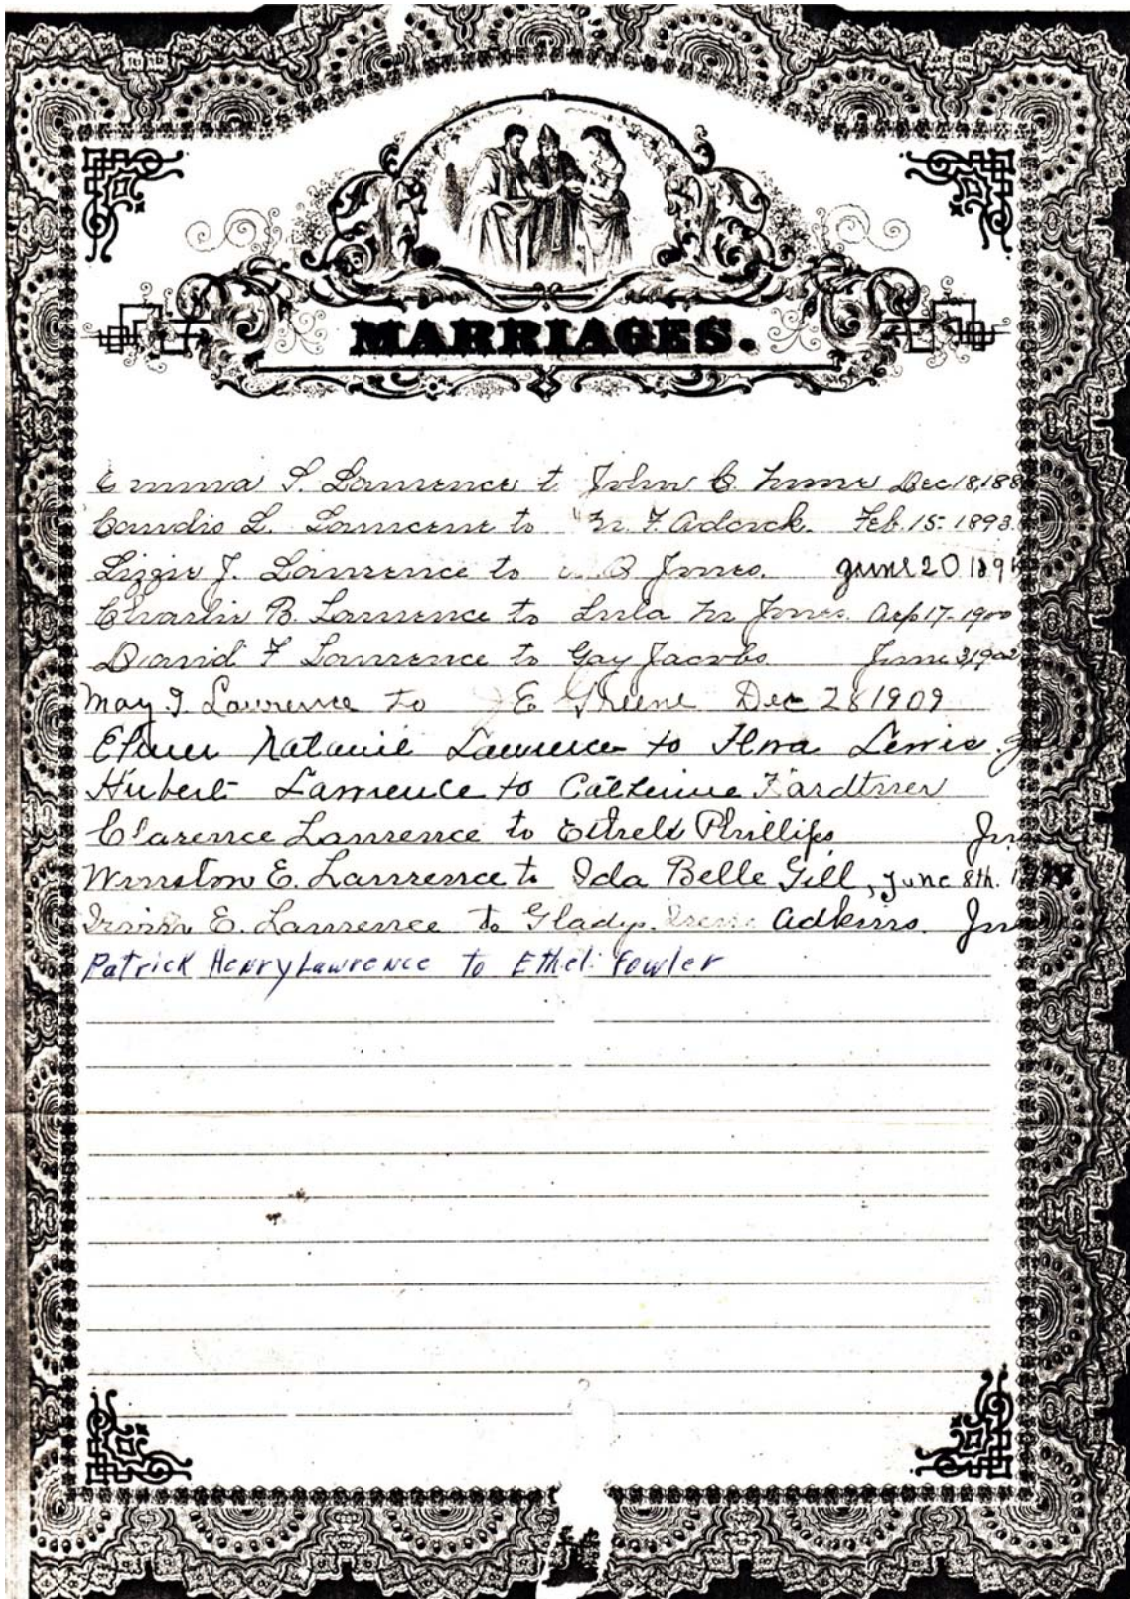 MARRIAGES.
Emma S. Lawrence to John C. Dec 18, 188
L. Lawrence to M. F. Adcock. Feb. 15- 1893.
Lizzie J. Lawrence to B Jones. June 20 189
Charlie B. Lawrence to Lula M Jones. 17- 1900
David F Lawrence to Gay Jacobs June 3, 1902
May I. Lawrence to E Greene Dec 28 1909
Lawrence to Lewis.
Hubert Lawrence to Catherine
Clarence Lawrence to Phillips
Winston E. Lawrence to Ida Belle Gill, June 8th.
E. Lawrence to Gladys Adkins.
Patrick Henry Lawrence to Ethel Fowler